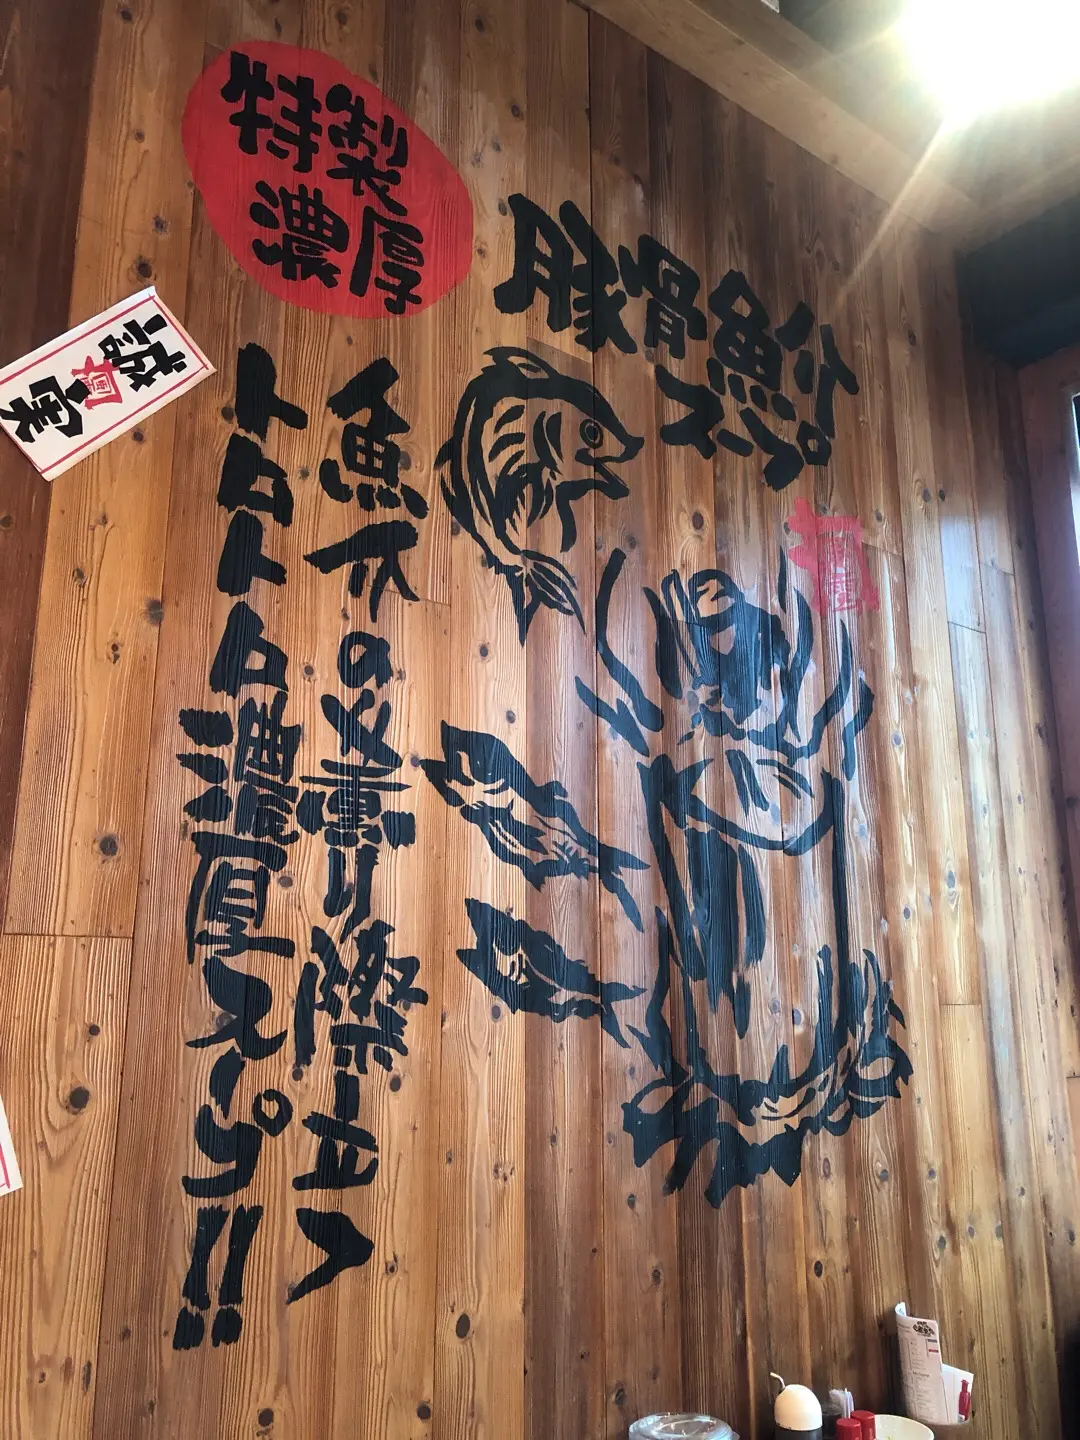 特製
濃厚
豚骨魚介
スープ
魚介の薫り際立つ
トロトロ濃厚スープ!!